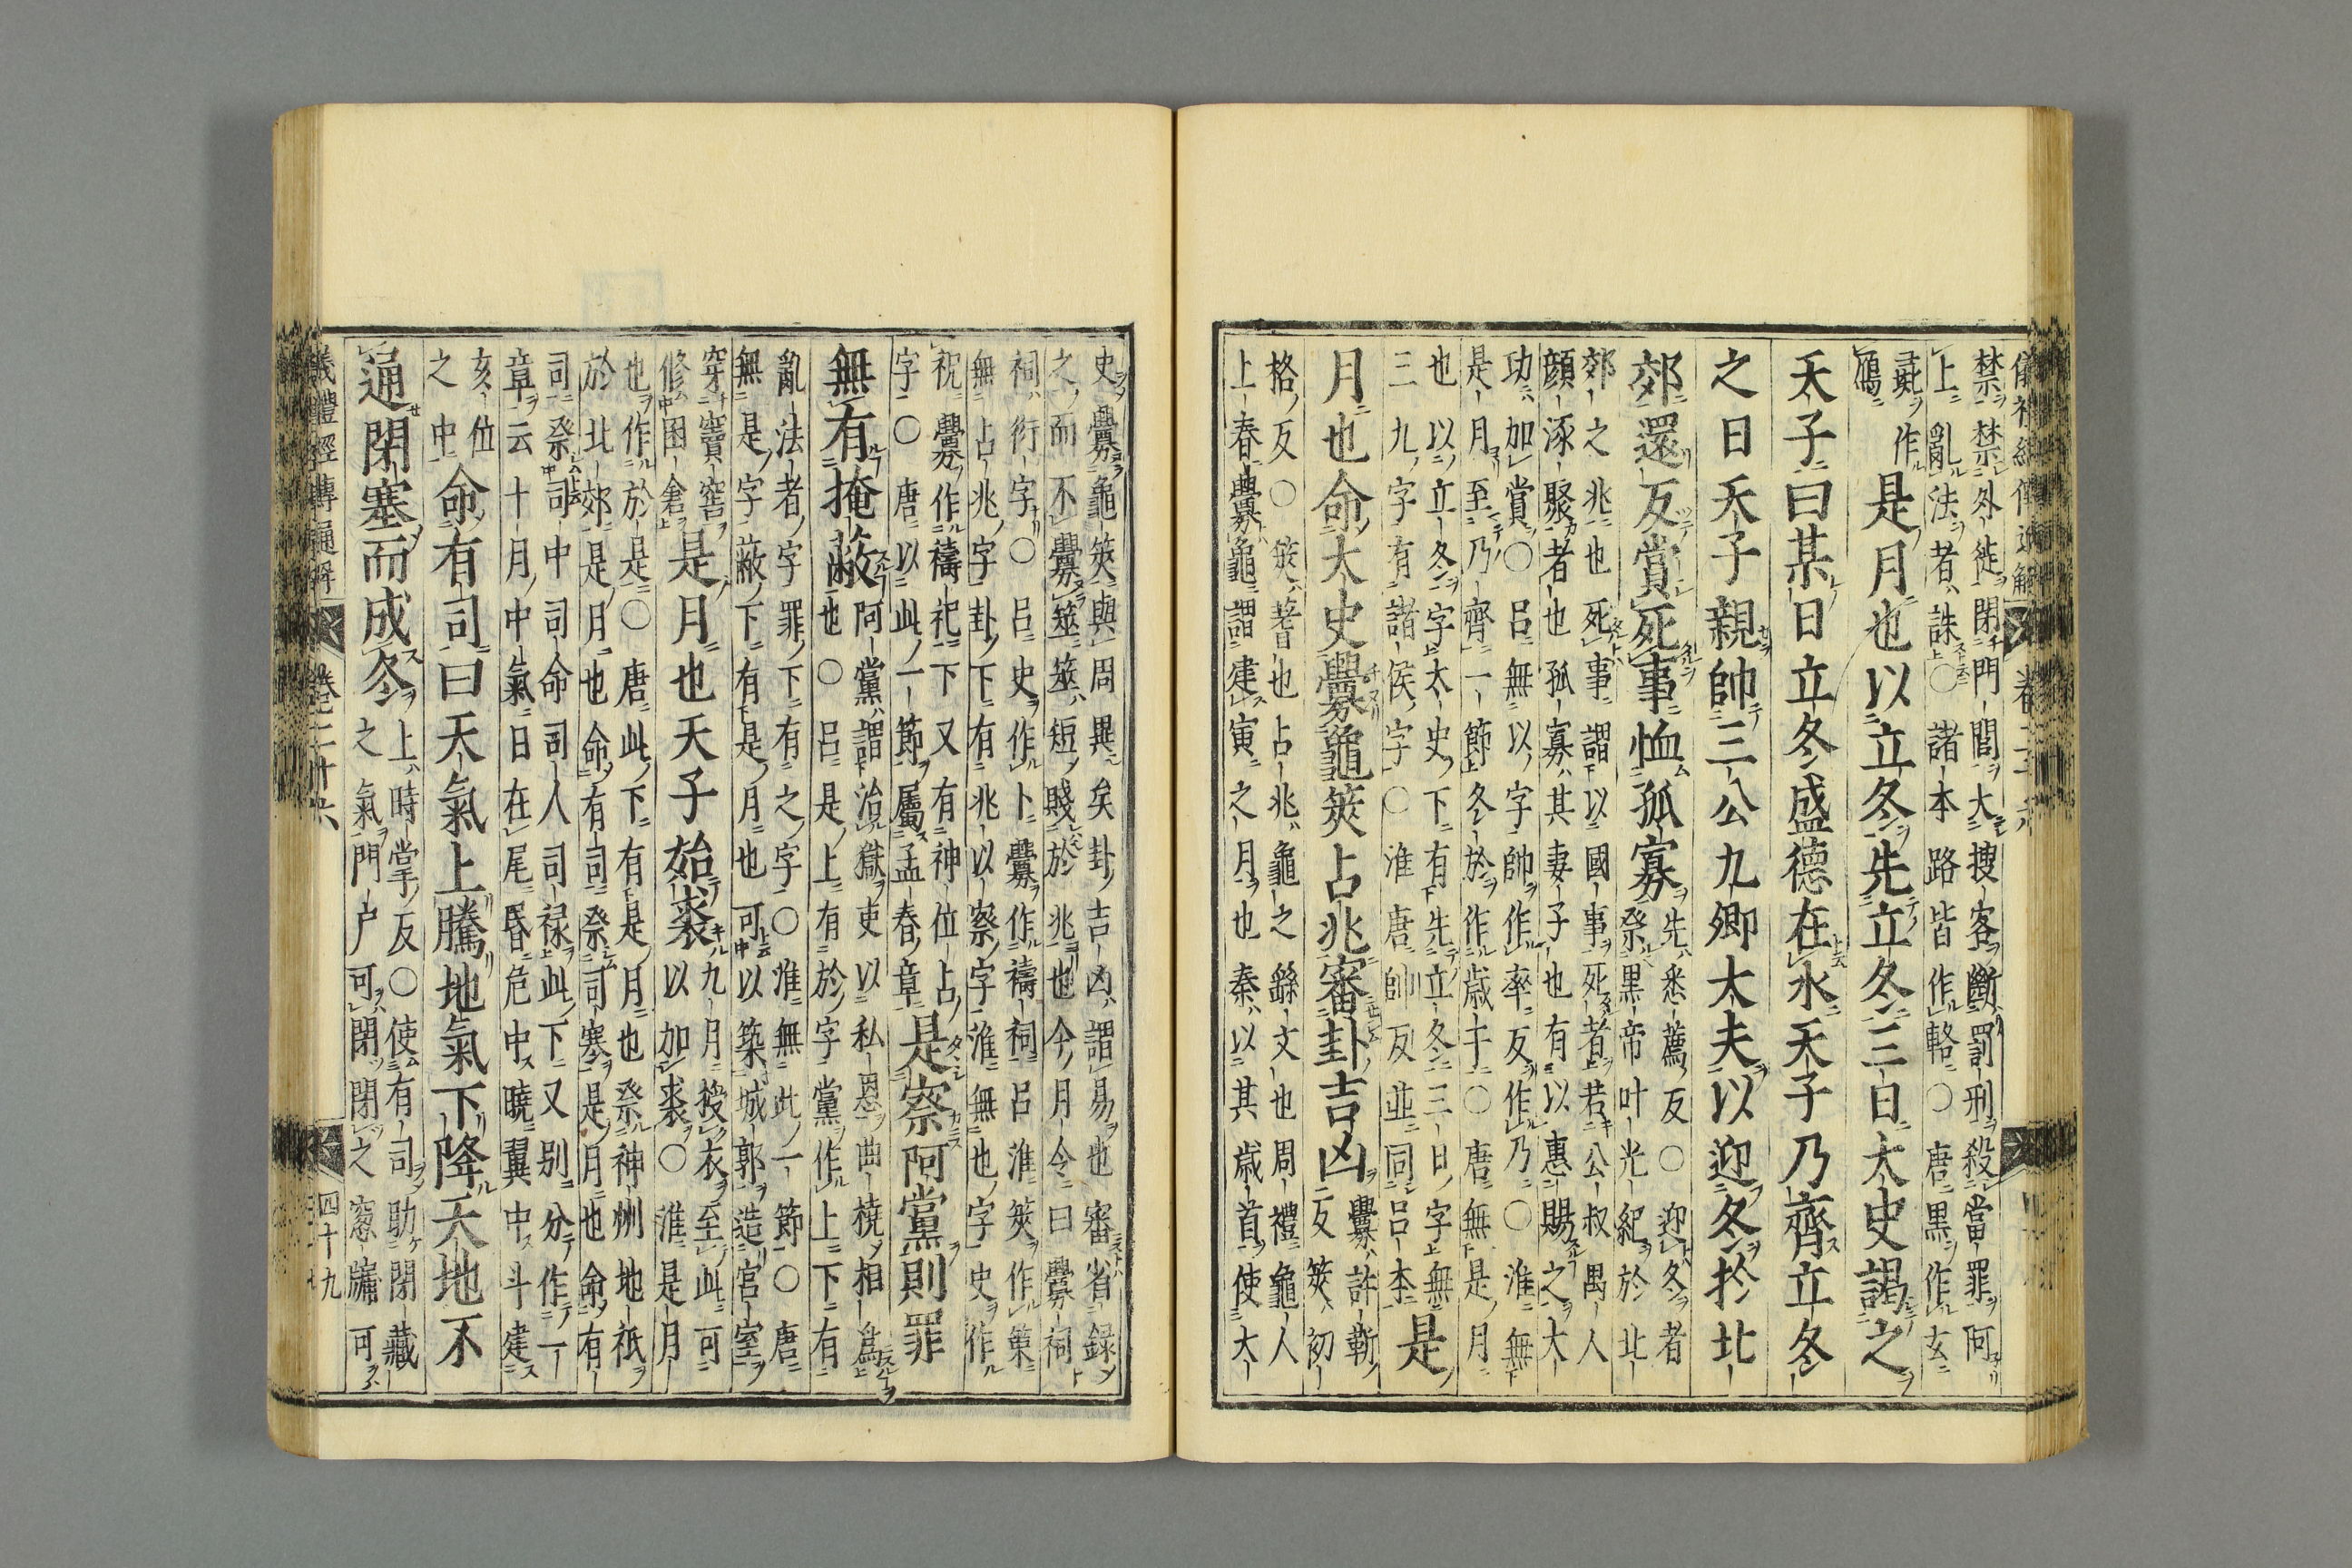 儀禮經傳通解
禁禁外徙閉門閭大搜客斷罰刑殺當罪阿
上亂法者誅〇諸本路皆作輅〇唐黑作玄
作
鴈
是月也以立冬先立冬三日太史謁之
天子曰某日立冬盛德在水天子乃齊立冬
之日天子親帥三公九卿大夫以迎冬於北
郊還反賞死事恤孤寡
先悉薦反〇迎冬者
祭黑帝叶光紀於北
郊之兆也死事謂以國事死者若公叔禺人
顔涿聚者也孤寡其妻子也有以惠賜之大
功加賞〇呂無以字帥作率反作乃〇淮無
是月至乃齊一節冬於作歲于〇唐無是月
也以立冬字太史下有先立冬三日字無
三九字有諸侯字〇淮唐帥反並同呂本
是
月也命太史釁龜筴占兆審卦吉凶
釁許靳
反筴初
格反〇筴蓍也占兆龜之繇文也周禮龜人
上春釁龜謂建寅之月也秦以其歲首使大
史釁龜筴與周異矣卦吉凶謂易也審省録
之而不釁筮筮短賤於兆也今月令曰釁祠
祠衍字〇呂史作卜釁作禱祠呂淮筴作策
無占兆字卦下有兆以察字淮無也字史作
祝釁作禱祀下又有神位占
字〇唐以此一節屬孟春章
是察阿黨則罪
無有掩蔽
阿黨謂治獄吏以私恩曲橈相爲
也〇呂是上有於字黨作上下有
亂法者字罪下有之字〇淮無此一節〇唐
無是字蔽下有是月也可以築城郭造宮室
穿竇窖
修囷倉
是月也天子始裘
九月授衣至此可
以加裘〇淮是月
也作於是〇唐此下有是月也祭神州地祇
於北郊是月也命有司祭司塞是月也命有
司祭司中司命司人司祿此下又別分作一
章云十月中氣日在尾昏危中曉翼中斗建
亥位
之中
命有司曰天氣上騰地氣下降天地不
通閉塞而成冬
上時掌反〇使有司助閉藏
之氣門户可閉閉之窻牖可
儀禮經傳通解 卷二十六 四十九